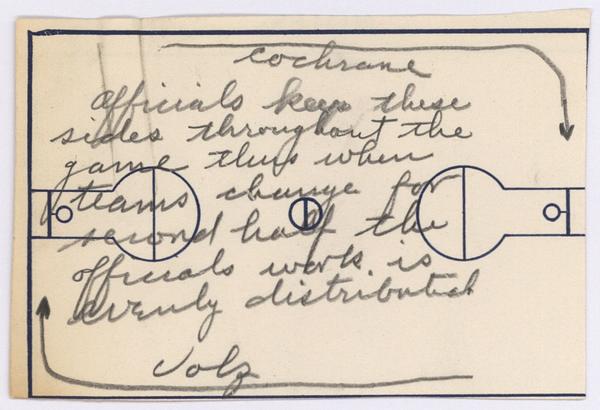 Cochrane
Officials keep these
sides throughout the
game thus when
teams change for
second half the
officials work is
evenly distributed
Volz